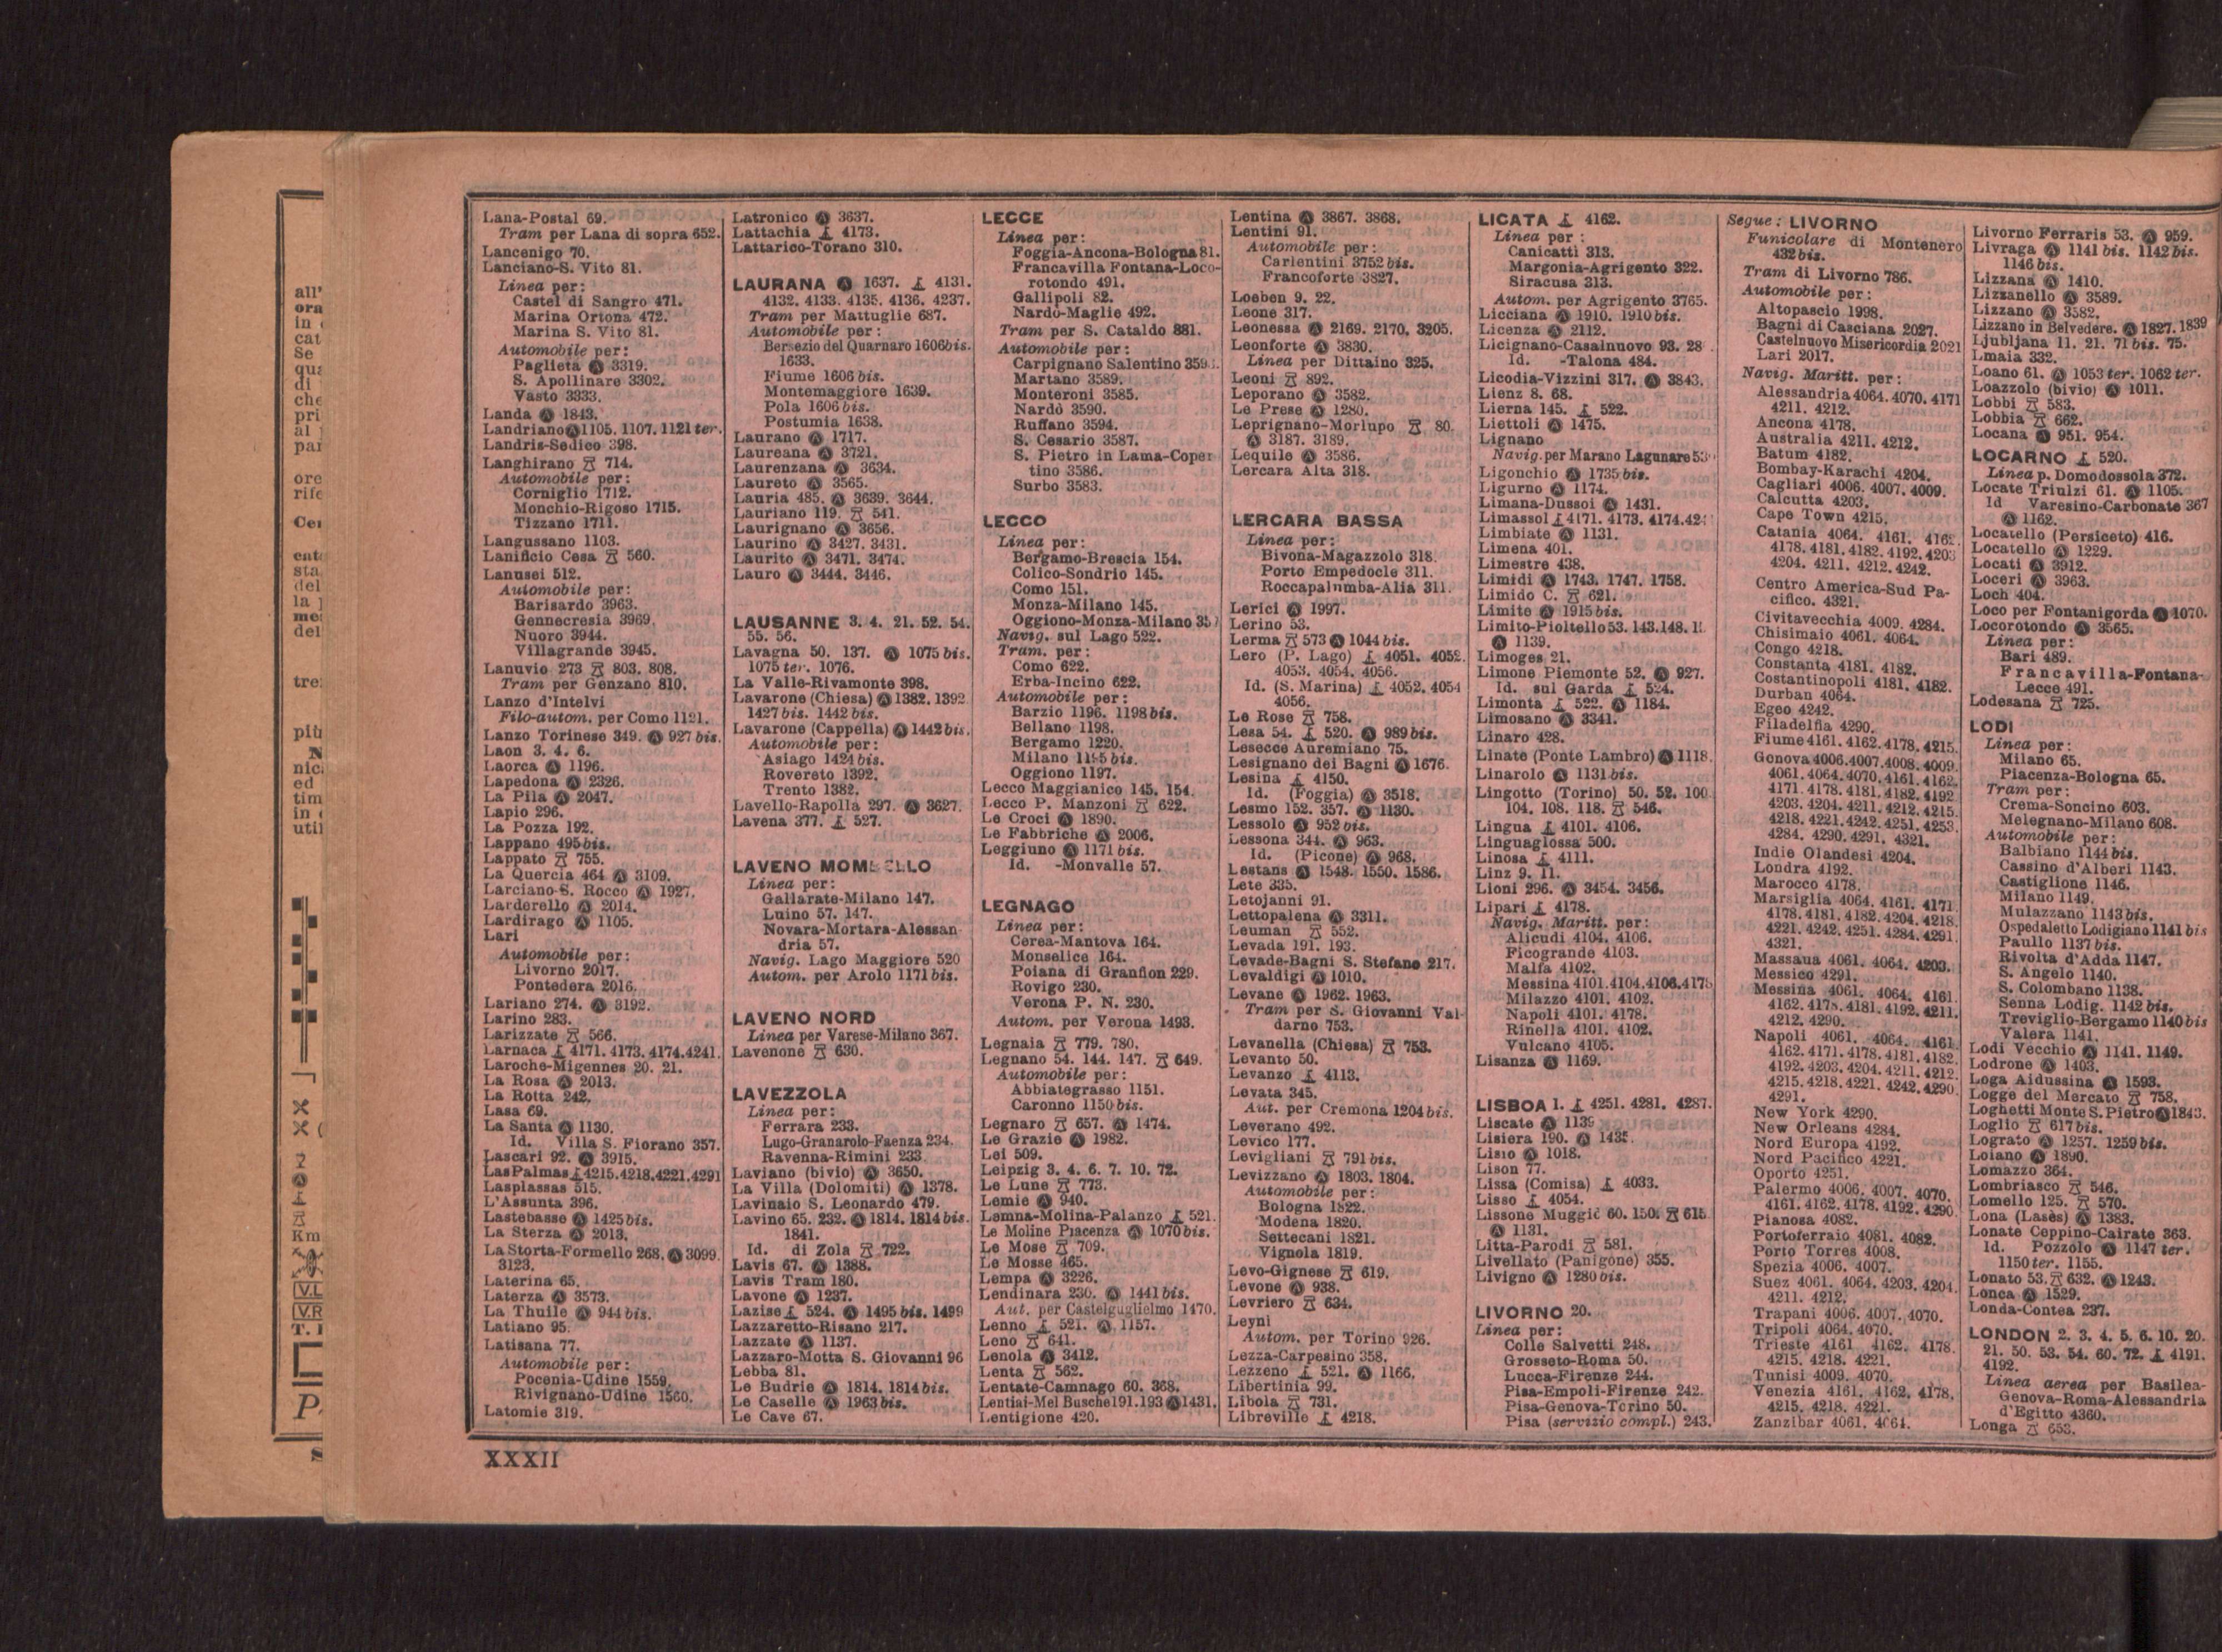 Lana-Postal 69.
Tram per Lana di sopra 652.
Lancenigo 70.
Lanciano-S. Vito 81.
Linea per:
Castel di Sangro 471.
Marina Ortona 472.
Marina S. Vito 81.
Automobile per:
Paglieta Ⓐ 3319.
S. Apollinare 3302.
Vasto 3333.
Landa Ⓐ 1843.
Landriano Ⓐ 1105. 1107. 1121 ter.
Landris-Sedico 398.
Langhirano 714.
Automobile per:
Corniglio 1712.
Monchio-Rigoso 1715.
Tizzano 1711.
Langussano 1103.
Lanificio Cesa 560.
Lanusei 512.
Automobile per:
Barisardo 3963.
Gennecresia 3969.
Nuoro 3944.
Villagrande 3945.
Lanuvio 273 803. 808.
Tram per Genzano 810.
Lanzo d'Intelvi
Filo-autom. per Como 1121.
Lanzo Torinese 349. Ⓐ 927 bis.
Laon 3. 4. 6.
Laorca Ⓐ 1196.
Lapedona Ⓐ 2326.
La Pila Ⓐ 2047.
Lapio 296.
La Pozza 192.
Lappano 495 bis.
Lappato 755.
La Quercia 464 Ⓐ 3109.
Larciano-S. Rocco Ⓐ 1927.
Larderello Ⓐ 2014.
Lardirago Ⓐ 1105.
Lari
Automobile per:
Livorno 2017.
Pontedera 2016.
Lariano 274. Ⓐ 3192.
Larino 283.
Larizzate 566.
Larnaca 4171. 4173. 4174. 4241.
Laroche-Migennes 20. 21.
La Rosa Ⓐ 2013.
La Rotta 242.
Lasa 69.
La Santa Ⓐ 1130.
Id. Villa S. Fiorano 357.
Lascari 92. Ⓐ 3915.
Las Palmas 4215. 4218. 4221. 4291
Lasplassas 515.
L'Assunta 396.
Lastebasse Ⓐ 1425 bis.
La Sterza Ⓐ 2013.
La Storta-Formello 268. Ⓐ 3099.
3123.
Laterina 65.
Laterza Ⓐ 3573.
La Thuile Ⓐ 944 bis.
Latiano 95.
Latisana 77.
Automobile per:
Pocenia-Udine 1559.
Rivignano-Udine 1560.
Latomie 319.
Latronico Ⓐ 3637.
Lattachia 4173.
Lattarico-Torano 310.
LAURANA Ⓐ 1637. 4131.
4132. 4133. 4135. 4136. 4237.
Tram per Mattuglie 687.
Automobile per:
Bersezio del Quarnaro 1606 bis.
1633.
Fiume 1606 bis.
Montemaggiore 1639.
Pola 1606 bis.
Postumia 1638.
Laurano Ⓐ 1717.
Laureana Ⓐ 3721.
Laurenzana Ⓐ 3634.
Laureto Ⓐ 3565.
Lauria 485. Ⓐ 3639. 3644.
Lauriano 119. 541.
Laurignano Ⓐ 3656.
Laurino Ⓐ 3427. 3431.
Laurito Ⓐ 3471. 3474.
Lauro Ⓐ 3444. 3446.
LAUSANNE 3. 4. 21. 52. 54.
55. 56.
Lavagna 50. 137. Ⓐ 1075 bis.
1075 ter. 1076.
La Valle-Rivamonte 398.
Lavarone (Chiesa) Ⓐ 1382. 1392
1427 bis. 1442 bis.
Lavarone (Cappella) Ⓐ 1442 bis.
Automobile per:
Asiago 1424 bis.
Rovereto 1392.
Trento 1382.
Lavello-Rapolla 297. Ⓐ 3627.
Lavena 377. 527.
LAVENO
Linea per:
Gallarate-Milano 147.
Luino 57. 147.
Novara-Mortara-Alessan
dria 57.
Navig. Lago Maggiore 520
Autom. per Arolo 1171 bis.
LAVENO NORD
Linea per Varese-Milano 367.
Lavenone 630.
LAVEZZOLA
Linea per:
Ferrara 233.
Lugo-Granarolo-Faenza 234.
Ravenna-Rimini 233.
Laviano (bivio) Ⓐ 3650.
La Villa (Dolomiti) Ⓐ 1378.
Lavinaio S. Leonardo 479.
Lavino 65. 232. Ⓐ 1814. 1814 bis.
1841.
Id. di Zola 722.
Lavis 67. Ⓐ 1388.
Lavis Tram 180.
Lavone Ⓐ 1237.
Lazise 524. Ⓐ 1495 bis. 1499
Lazzaretto-Risano 217.
Lazzate Ⓐ 1137.
Lazzaro-Motta S. Giovanni 96
Lebba 81.
Le Budrie Ⓐ 1814. 1814 bis.
Le Caselle Ⓐ 1963 bis.
Le Cave 67.
LECCE
Linea per:
Foggia-Ancona-Bologna 81.
Francavilla Fontana-Loco-
rotondo 491.
Gallipoli 82.
Nardò-Maglie 492.
Tram per S. Cataldo 881.
Automobile per:
Carpignano Salentino
Martano 3589.
Monteroni 3585.
Nardò 3590.
Ruffano 3594.
S. Cesario 3587.
S. Pietro in Lama-Coper
tino 3586.
Surbo 3583.
LECCO
Linea per:
Bergamo-Brescia 154.
Colico-Sondrio 145.
Como 151.
Monza-Milano 145.
Oggiono-Monza-Milano
Navig. sul Lago 522.
Tram. per:
Como 622.
Erba-Incino 622.
Automobile per:
Barzio 1196. 1198 bis.
Bellano 1198.
Bergamo 1220.
Milano 1195 bis.
Oggiono 1197.
Lecco Maggianico 145. 154.
Lecco P. Manzoni 622.
Le Croci Ⓐ 1890.
Le Fabbriche Ⓐ 2006.
Leggiuno Ⓐ 1171 bis.
Id. -Monvalle 57.
LEGNAGO
Linea per:
Cerea-Mantova 164.
Monselice 164.
Poiana di Granfion 229.
Rovigo 230.
Verona P. N. 230.
Autom. per Verona 1493.
Legnaia 779. 780.
Legnano 54. 144. 147. 649.
Automobile per:
Abbiategrasso 1151.
Caronno 1150 bis.
Legnaro 657. Ⓐ 1474.
Le Grazie Ⓐ 1982.
Lei 509.
Leipzig 3. 4. 6. 7. 10. 72.
Le Lune 773.
Lemie Ⓐ 940.
Lemna-Molina-Palanzo 521.
Le Moline Piacenza Ⓐ 1070 bis.
Le Mose 709.
Le Mosse 465.
Lempa Ⓐ 3226.
Lendinara 230. Ⓐ 1441 bis.
Aut. per Castelguglielmo 1470.
Lenno 521. Ⓐ 1157.
Leno 641.
Lenola Ⓐ 3412.
Lenta 562.
Lentate-Camnago 60. 368.
Lentiai-Mel Busche 191. 193 Ⓐ 1431.
Lentigione 420.
Lentina Ⓐ 3867. 3868.
Lentini 91.
Automobile per:
Carlentini 3752 bis.
Francoforte 3827.
Loeben 9. 22.
Leone 317.
Leonessa Ⓐ 2169. 2170. 3205.
Leonforte Ⓐ 3830.
Linea per Dittaino 325.
Leoni 892.
Leporano Ⓐ 3582.
Le Prese Ⓐ 1280.
Leprignano-Morlupo 80.
Ⓐ 3187. 3189.
Lequile Ⓐ 3586.
Lercara Alta 318.
LERCARA BASSA
Linea per:
Bivona-Magazzolo 318.
Porto Empedocle 311.
Roccapalumba-Alia 311.
Lerici Ⓐ 1997.
Lerino 53.
Lerma 573 Ⓐ 1044 bis.
Lero (P. Lago) 4051. 4052.
4053. 4054. 4056.
Id. (S. Marina) 4052. 4054
4056.
Le Rose 758.
Lesa 54. 520. Ⓐ 989 bis.
Lesecce Auremiano 75.
Lesignano dei Bagni Ⓐ 1676.
Lesina 4150.
Id. (Foggia) Ⓐ 3518.
Lesmo 152. 357. Ⓐ 1130.
Lessolo Ⓐ 952 bis.
Lessona 344. Ⓐ 963.
Id. (Picone) Ⓐ 968.
Lestans Ⓐ 1548. 1550. 1586.
Lete 335.
Letojanni 91.
Lettopalena Ⓐ 3311.
Leuman 552.
Levada 191. 193.
Levade-Bagni S. Stefano 217.
Levaldigi Ⓐ 1010.
Levane Ⓐ 1962. 1963.
Tram per S. Giovanni Val
darno 753.
Levanella (Chiesa) 753.
Levanto 50.
Levanzo 4113.
Levata 345.
Aut. per Cremona 1204 bis.
Leverano 492.
Levico 177.
Levigliani 791 bis.
Levizzano Ⓐ 1803. 1804.
Automobile per:
Bologna 1822.
Modena 1820.
Settecani 1821.
Vignola 1819.
Levo-Gignese 619.
Levone Ⓐ 938.
Levriero 634.
Leyni
Autom. per Torino 926.
Lezza-Carpesino 358.
Lezzeno 521. Ⓐ 1166.
Libertinia 99.
Libola 731.
Libreville 4218.
LICATA 4162.
Linea per:
Canicattì 313.
Margonia-Agrigento 322.
Siracusa 313.
Autom. per Agrigento 3765.
Licciana Ⓐ 1910. 1910 bis.
Licenza Ⓐ 2112.
Licignano-Casalnuovo 93.
Id. -Talona 484.
Licodia-Vizzini 317. Ⓐ 3843.
Lienz 8. 68.
Lierna 145. 522.
Liettoli Ⓐ 1475.
Lignano
Navig. per Marano Lagunare
Ligonchio Ⓐ 1735 bis.
Ligurno Ⓐ 1174.
Limana-Dussoi Ⓐ 1431.
Limassol 4171. 4173. 4174.
Limbiate Ⓐ 1131.
Limena 401.
Limestre 438.
Limidi Ⓐ 1743. 1747. 1758.
Limido C. 621.
Limite Ⓐ 1915 bis.
Limito-Pioltello 53. 143. 148.
Ⓐ 1139.
Limoges 21.
Limone Piemonte 52. Ⓐ 927.
Id. sul Garda 524.
Limonta 522. Ⓐ 1184.
Limosano Ⓐ 3341.
Linaro 428.
Linate (Ponte Lambro) Ⓐ 1118.
Linarolo Ⓐ 1131 bis.
Lingotto (Torino) 50. 52. 100
104. 108. 118. 546.
Lingua 4101. 4106.
Linguaglossa 500.
Linosa 4111.
Linz 9. 11.
Lioni 296. Ⓐ 3454. 3456.
Lipari 4178.
Navig. Maritt. per:
Alicudi 4104. 4106.
Ficogrande 4103.
Malfa 4102.
Messina 4101. 4104. 4106. 4178
Milazzo 4101. 4102.
Napoli 4101. 4178.
Rinella 4101. 4102.
Vulcano 4105.
Lisanza Ⓐ 1169.
LISBOA 1. 4251. 4281. 4287.
Liscate Ⓐ 1139
Lisiera 190. Ⓐ 1435.
Lisio Ⓐ 1018.
Lison 77.
Lissa (Comisa) 4033.
Lisso 4054.
Lissone Muggiò 60. 150. 615
Ⓐ 1131.
Litta-Parodi 581.
Livellato (Panigone) 355.
Livigno Ⓐ 1280 bis.
LIVORNO 20.
Linea per:
Colle Salvetti 248.
Grosseto-Roma 50.
Lucca-Firenze 244.
Pisa-Empoli-Firenze 242.
Pisa-Genova-Torino 50.
Pisa (servizio compl.) 243.
Segue: LIVORNO
Funicolare di Montenero
432 bis.
Tram di Livorno 786.
Automobile per:
Altopascio 1998.
Bagni di Casciana 2027.
Castelnuovo Misericordia 2021
Lari 2017.
Navig. Maritt. per:
Alessandria 4064. 4070. 4171
4211. 4212.
Ancona 4178.
Australia 4211. 4212.
Batum 4182.
Bombay-Karachi 4204.
Cagliari 4006. 4007. 4009.
Calcutta 4203.
Cape Town 4215.
Catania 4064. 4161. 4162.
4178. 4181. 4182. 4192. 4203
4204. 4211. 4212. 4242.
Centro America-Sud Pa-
cifico. 4321.
Civitavecchia 4009. 4284.
Chisimaio 4061. 4064.
Congo 4218.
Constanta 4181. 4182.
Costantinopoli 4181. 4182.
Durban 4064.
Egeo 4242.
Filadelfia 4290.
Fiume 4161. 4162. 4178. 4215.
Genova 4006. 4007. 4008. 4009.
4061. 4064. 4070. 4161. 4162.
4171. 4178. 4181. 4182. 4192
4203. 4204. 4211. 4212. 4215.
4218. 4221. 4242. 4251. 4253.
4284. 4290. 4291. 4321.
Indie Olandesi 4204.
Londra 4192.
Marocco 4178.
Marsiglia 4064. 4161. 4171.
4178. 4181. 4182. 4204. 4218.
4221. 4242. 4251. 4284. 4291.
4321.
Massaua 4061. 4064. 4203.
Messico 4291.
Messina 4061. 4064. 4161.
4162. 4178. 4181. 4192. 4211.
4212. 4290.
Napoli 4061. 4064. 4161.
4162. 4171. 4178. 4181. 4182.
4192. 4203. 4204. 4211. 4212.
4215. 4218. 4221. 4242. 4290.
4291.
New York 4290.
New Orleans 4284.
Nord Europa 4192.
Nord Pacifico 4221.
Oporto 4251.
Palermo 4006. 4007. 4070.
4161. 4162. 4178. 4192. 4290.
Pianosa 4082.
Portoferraio 4081. 4082.
Porto Torres 4008.
Spezia 4006. 4007.
Suez 4061. 4064. 4203. 4204.
4211. 4212.
Trapani 4006. 4007. 4070.
Tripoli 4064. 4070.
Trieste 4161 4162. 4178.
4215. 4218. 4221.
Tunisi 4009. 4070.
Venezia 4161. 4162. 4178.
4215. 4218. 4221.
Zanzibar 4061. 4064.
Livorno Ferraris 53. Ⓐ 959.
Livraga Ⓐ 1141 bis. 1142 bis.
1146 bis.
Lizzana Ⓐ 1410.
Lizzanello Ⓐ 3589.
Lizzano Ⓐ 3582.
Lizzano in Belvedere. Ⓐ 1827. 1839
Ljubljana 11. 21. 71 bis. 75.
Lmaia 332.
Loano 61. Ⓐ 1053 ter. 1062 ter.
Loazzolo (bivio) Ⓐ 1011.
Lobbi 583.
Lobbia 662.
Locana Ⓐ 951. 954.
LOCARNO 520.
Linea p. Domodossola 372.
Locate Triulzi 61. Ⓐ 1105.
Id Varesino-Carbonate 367
Ⓐ 1162.
Locatello (Persiceto) 416.
Locatello Ⓐ 1229.
Locati Ⓐ 3912.
Loceri Ⓐ 3963.
Loch 404.
Loco per Fontanigorda Ⓐ 1070.
Locorotondo Ⓐ 3565.
Linea per:
Bari 489.
Francavilla-Fontana-
Lecce 491.
Lodesana 725.
LODI
Linea per:
Milano 65.
Piacenza-Bologna 65.
Tram per:
Crema-Soncino 603.
Melegnano-Milano 608.
Automobile per:
Balbiano 1144 bis.
Cassino d'Alberi 1143.
Castiglione 1146.
Milano 1149.
Mulazzano 1143 bis.
Ospedaletto Lodigiano 1141 bis
Paullo 1137 bis.
Rivolta d'Adda 1147.
S. Angelo 1140.
S. Colombano 1138.
Senna Lodig. 1142 bis.
Treviglio-Bergamo 1140 bis
Valera 1141.
Lodi Vecchio Ⓐ 1141. 1149.
Lodrone Ⓐ 1403.
Loga Aidussina Ⓐ 1593.
Logge del Mercato 758.
Loghetti Monte S. Pietro Ⓐ 1843.
Loglio 617 bis.
Lograto Ⓐ 1257. 1259 bis.
Loiano Ⓐ 1890.
Lomazzo 364.
Lombriasco 546.
Lomello 125. 570.
Lona (Lasès) Ⓐ 1383.
Lonate Ceppino-Cairate 363.
Id. Pozzolo Ⓐ 1147 ter.
1150 ter. 1155.
Lonato 53. 632. Ⓐ 1243.
Lonca Ⓐ 1529.
Londa-Contea 237.
LONDON 2. 3. 4. 5. 6. 10. 20.
21. 50. 53. 54. 60. 72. 4191.
4192.
Linea aerea per Basilea-
Genova-Roma-Alessandria
d'Egitto 4360.
Longa 653.
XXXII